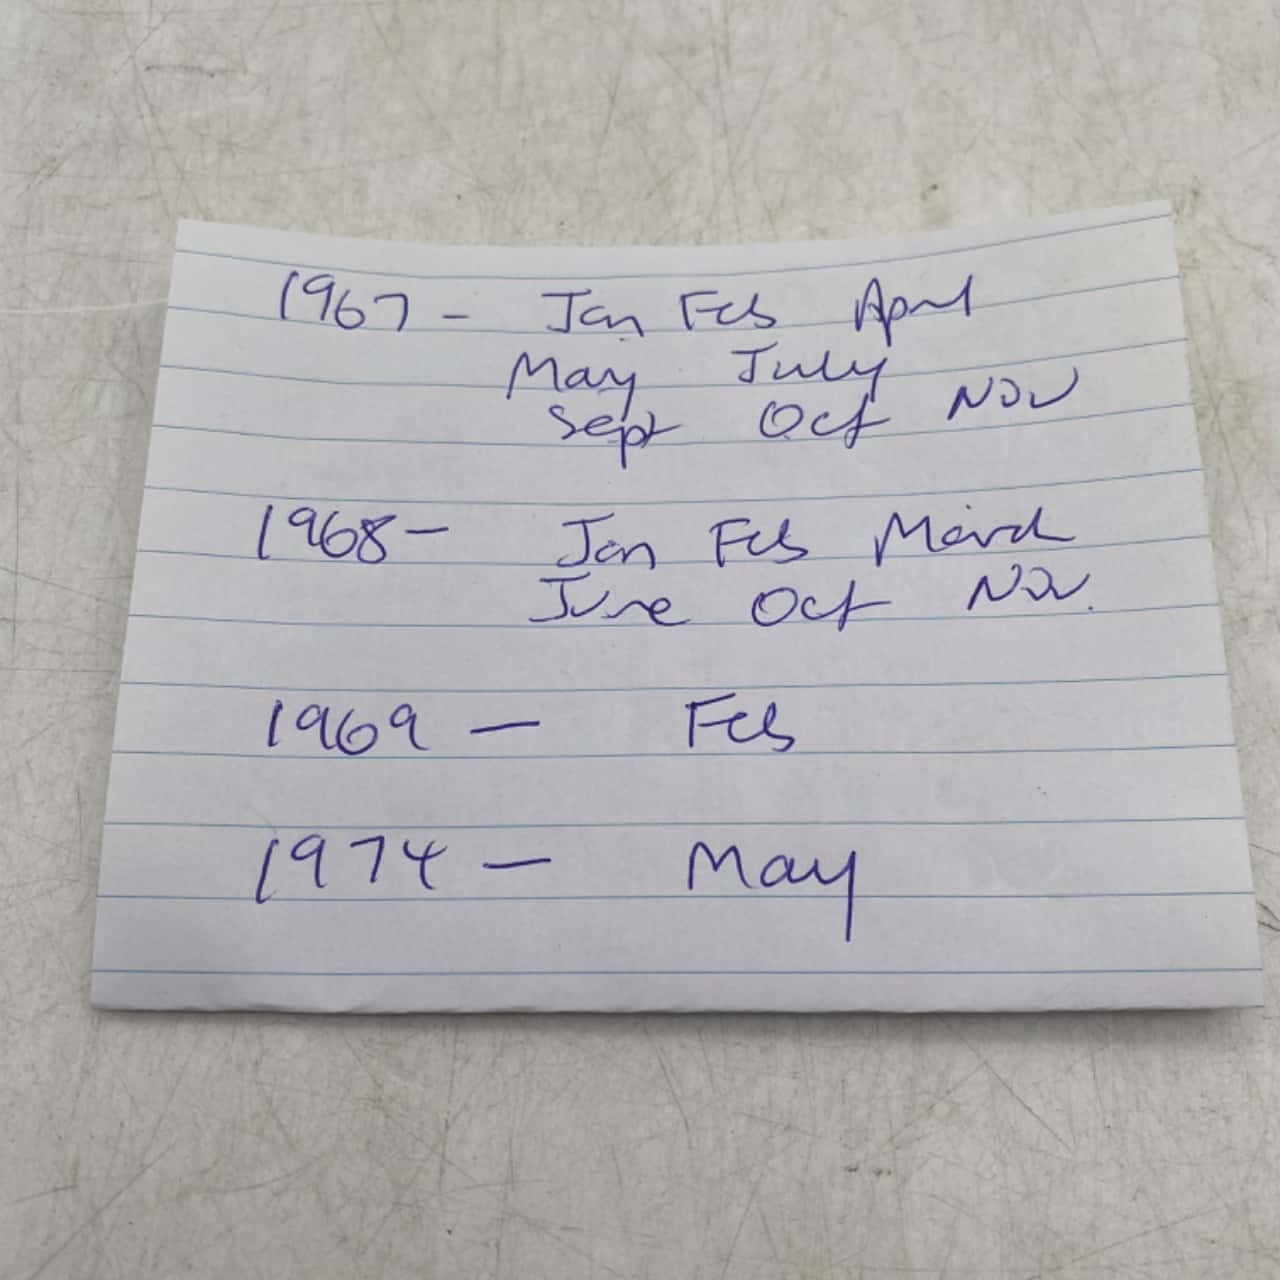 1967 - Jan Feb April
May July
Sept Oct Nov
1968 - Jan Feb March
June Oct Nov.
1969 - Feb
1974 - May